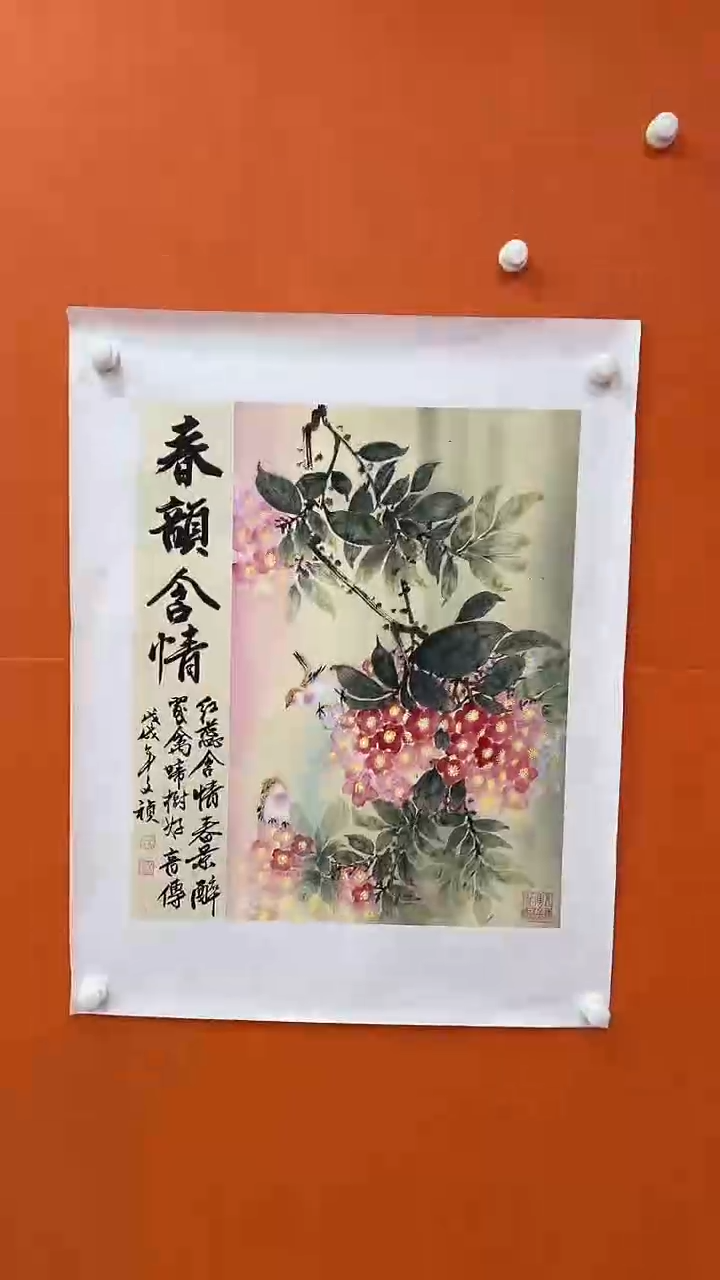 春韻含情
红蕊含情春景醉
翠禽啼樹好音傳
戊戌年文禎